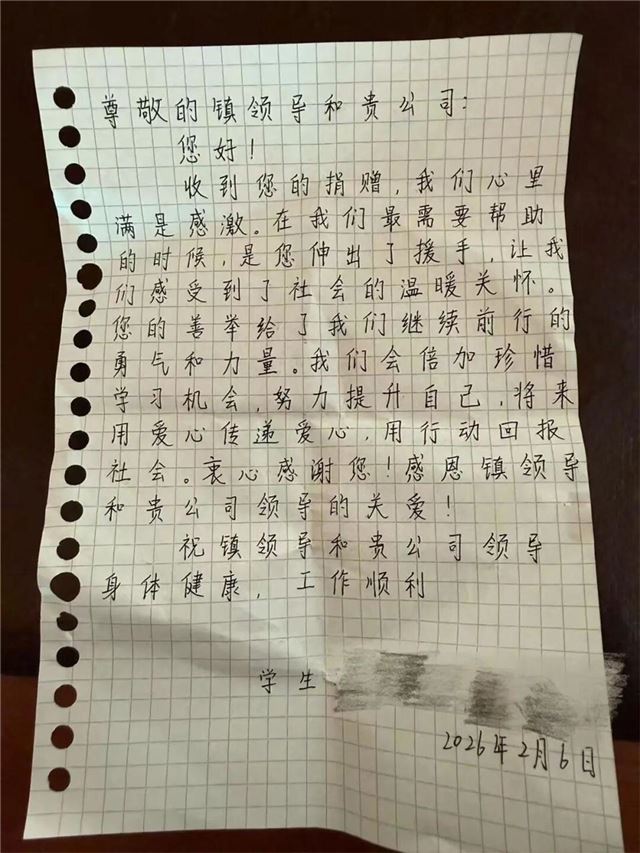 尊敬的镇领导和贵公司:
您好!
收到您的捐赠,我们心里
满是感激。在我们最需要帮助
的时候,是您伸出了援手,让我
们感受到了社会的温暖关怀。
您的善举给了我们继续前行的
勇气和力量。我们会倍加珍惜
学习机会,努力提升自己,将来
用爱心传递爱心,用行动回报
社会。衷心感谢您!感恩镇领导
和贵公司领导的关爱!
祝镇领导和贵公司领导
身体健康,工作顺利
学生
2026年2月6日